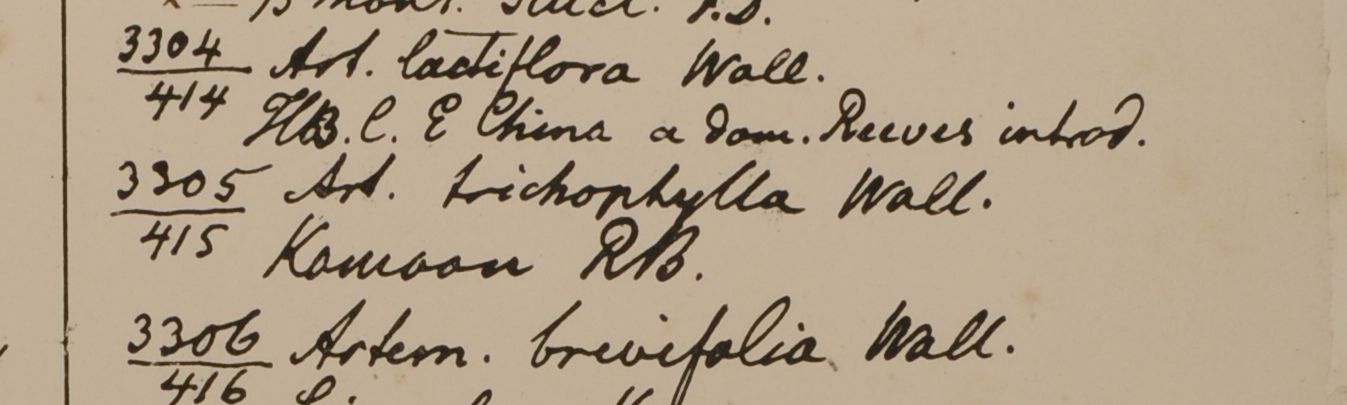 3304 Art. lactiflora Wall.
414
HB.C. E China a dom. Reeves introd.
3305 Art. trichophylla Wall.
415
Kamaon RB.
3306 Artem. brevifolia Wall.
416